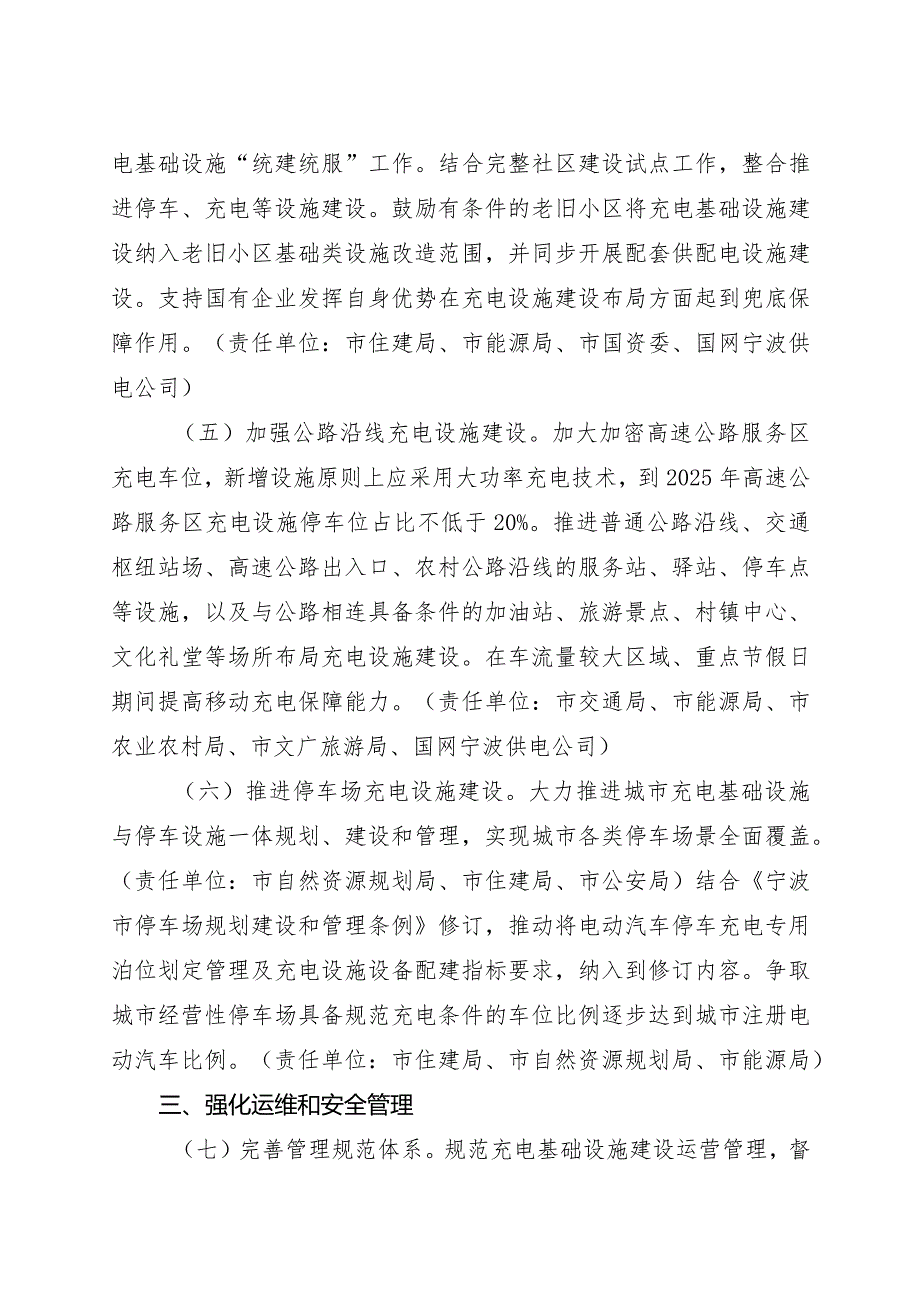 电基础设施“统建统服”工作。结合完整社区建设试点工作，整合推
进停车、充电等设施建设。鼓励有条件的老旧小区将充电基础设施建
设纳入老旧小区基础类设施改造范围，并同步开展配套供配电设施建
设。支持国有企业发挥自身优势在充电设施建设布局方面起到兜底保
障作用。（责任单位：市住建局、市能源局、市国资委、国网宁波供
电公司）
（五）加强公路沿线充电设施建设。加大加密高速公路服务区
充电车位，新增设施原则上应采用大功率充电技术，到 2025 年高速公
路服务区充电设施停车位占比不低于 20%。推进普通公路沿线、交通
枢纽站场、高速公路出入口、农村公路沿线的服务站、驿站、停车点
等设施，以及与公路相连具备条件的加油站、旅游景点、村镇中心、
文化礼堂等场所布局充电设施建设。在车流量较大区域、重点节假日
期间提高移动充电保障能力。（责任单位：市交通局、市能源局、市
农业农村局、市文广旅游局、国网宁波供电公司）
（六）推进停车场充电设施建设。大力推进城市充电基础设施
与停车设施一体规划、建设和管理，实现城市各类停车场景全面覆盖。
（责任单位：市自然资源规划局、市住建局、市公安局）结合《宁波
市停车场规划建设和管理条例》修订，推动将电动汽车停车充电专用
泊位划定管理及充电设施设备配建指标要求，纳入到修订内容。争取
城市经营性停车场具备规范充电条件的车位比例逐步达到城市注册电
动汽车比例。（责任单位：市住建局、市自然资源规划局、市能源局）
三、强化运维和安全管理
（七）完善管理规范体系。规范充电基础设施建设运营管理，督